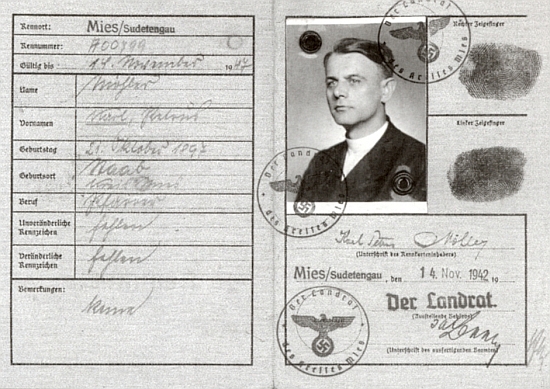 Kennort: Mies/Sudetengau
Kennummer: A00799
Gültig bis 14. November 1947
Name
Vornamen Karl,
Geburtstag 21. Oktober 1897
Geburtsort Staab
Beruf Pfarrer
Unveränderliche Kennzeichen fehlen
Veränderliche Kennzeichen fehlen
Bemerkungen: keine
Der Landrat
des Kreises Mies
Rechter Zeigefinger
Linker Zeigefinger
Der Landrat
des Kreises Mies
Karl
(Unterschrift des Kennkarteninhabers)
Mies/Sudetengau, den 14. Nov. 1942 19
Der Landrat.
(Ausstellende Behörde)
(Unterschrift des ausfertigenden Beamten)
Der Landrat
des Kreises Mies